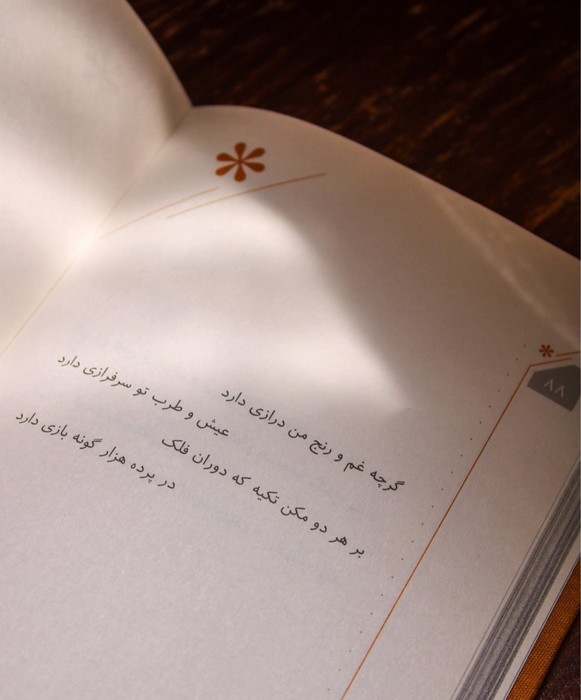 ۸۸
گرچه غم و رنج من درازی دارد
عیش و طرب تو سرفرازی دارد
بر هر دو مکن تکیه که دوران فلک
در پرده هزار گونه بازی دارد